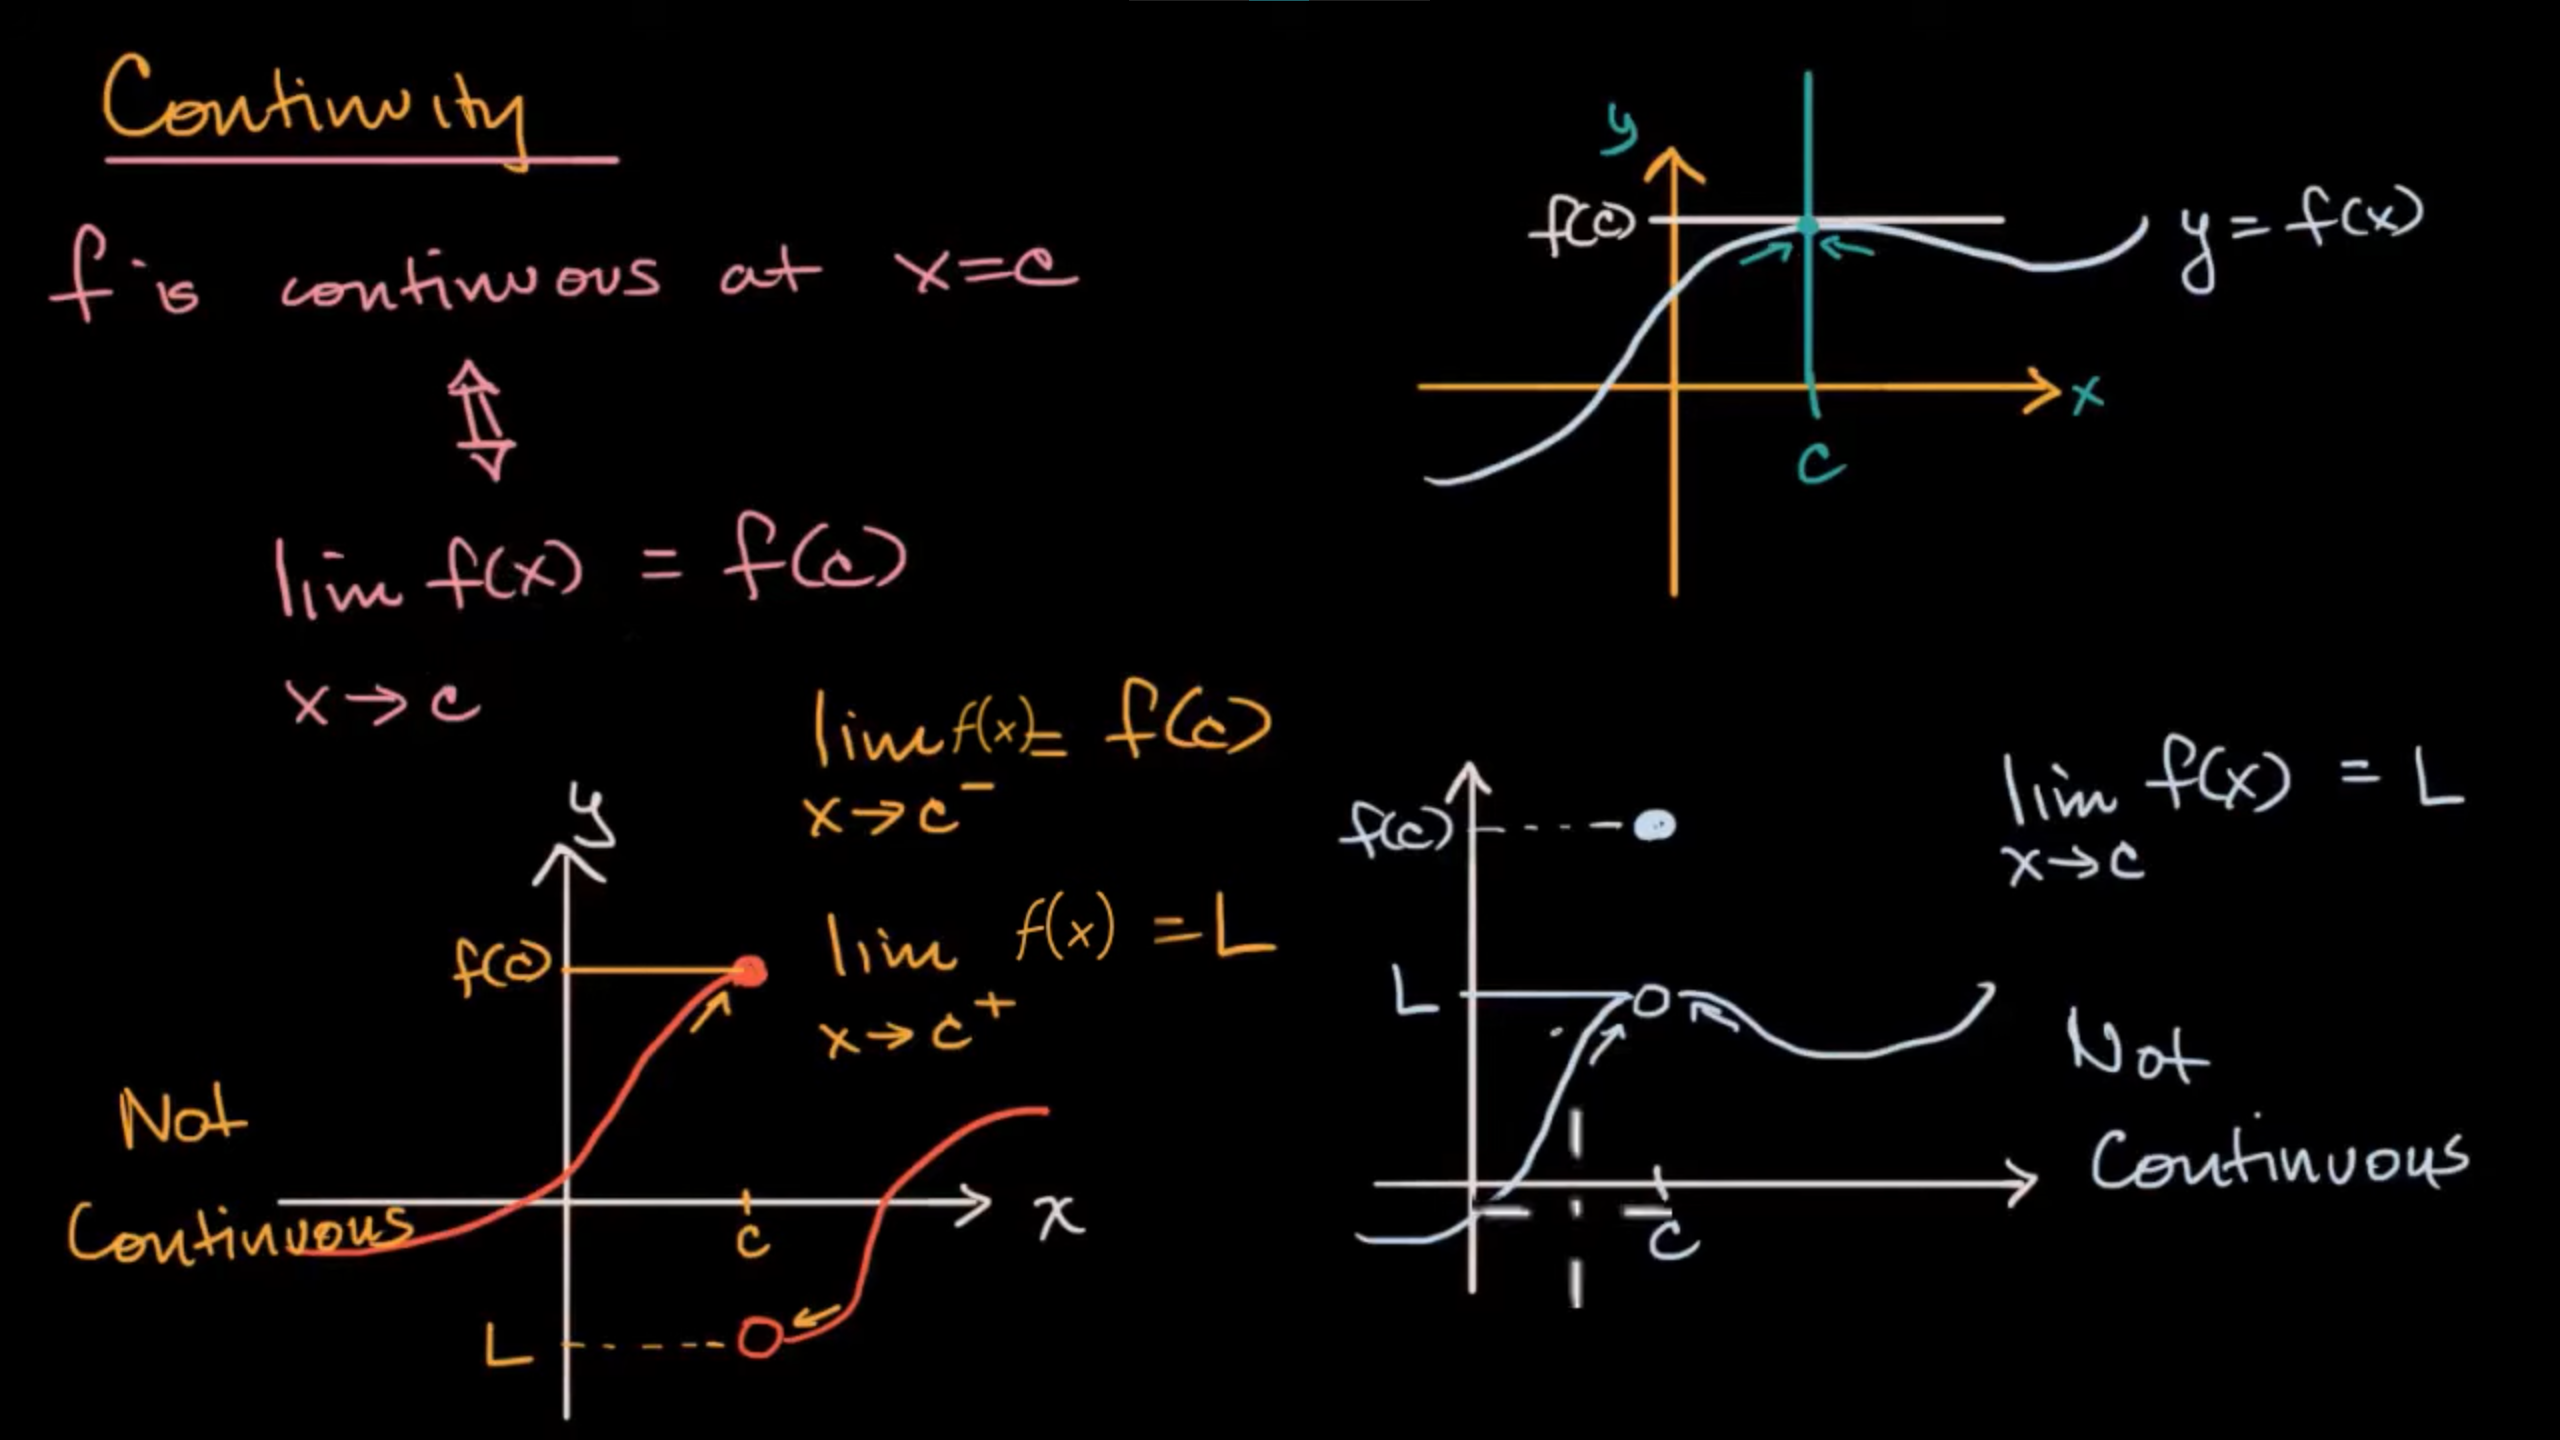 Continuity
f is continuous at x=c
lim f(x) = f(c)
x→c
y
f(c)
y = f(x)
x
c
lim f(x) = f(c)
x→c⁻
lim f(x) = L
x→c⁺
y
f(c)
Not
Continuous
c
x
L
f(c)
lim f(x) = L
x→c
L
Not
Continuous
c